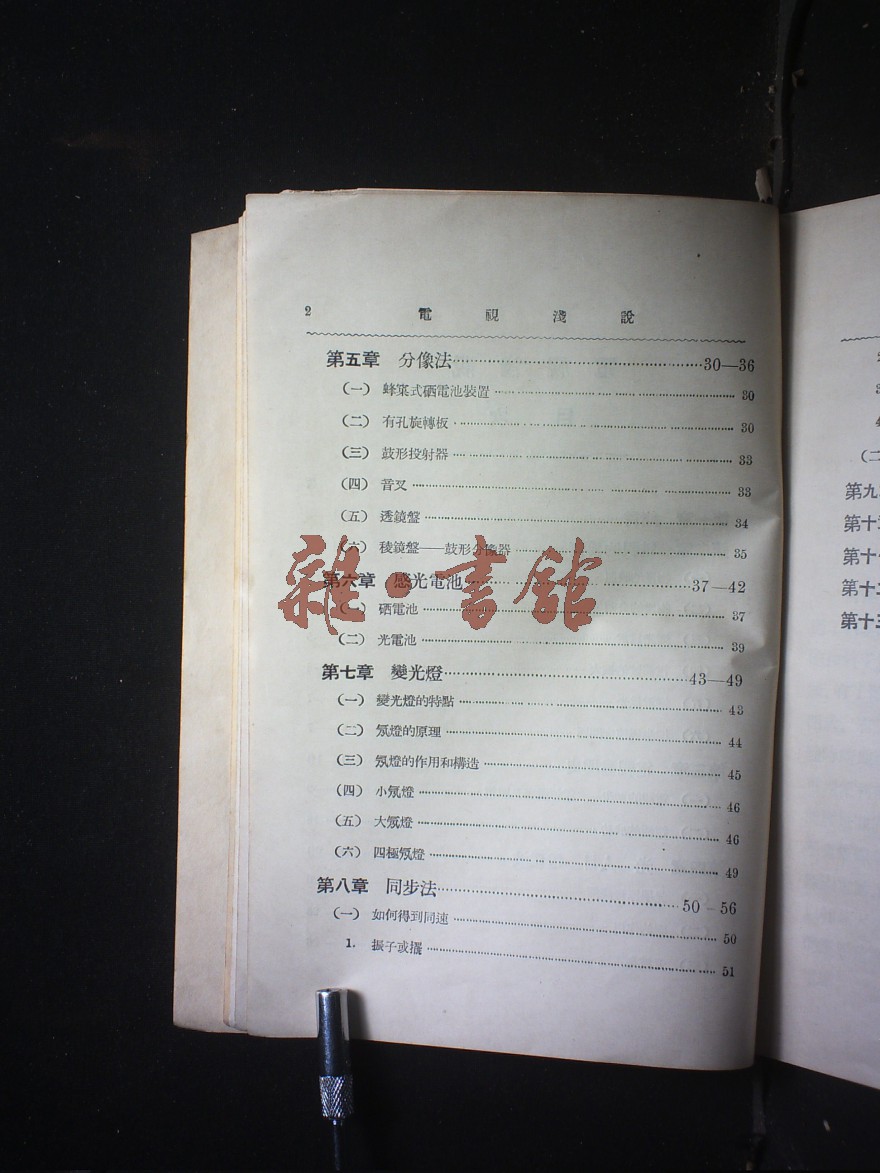 2 電視淺說
第五章 分像法 30—36
(一) 蜂窠式硒電池裝置 30
(二) 有孔旋轉板 30
(三) 鼓形投射器 33
(四) 音叉 33
(五) 透鏡盤 34
(六) 稜鏡盤——鼓形分像器 35
第六章 感光電池 37—42
(一) 硒電池 37
(二) 光電池 39
第七章 變光燈 43—49
(一) 變光燈的特點 43
(二) 氖燈的原理 44
(三) 氖燈的作用和構造 45
(四) 小氖燈 46
(五) 大氖燈 46
(六) 四極氖燈 49
第八章 同步法 50-56
(一) 如何得到同速 50
1. 振子或擺 51
雜·書館
(二
第九
第十
第十
第十二
第十三